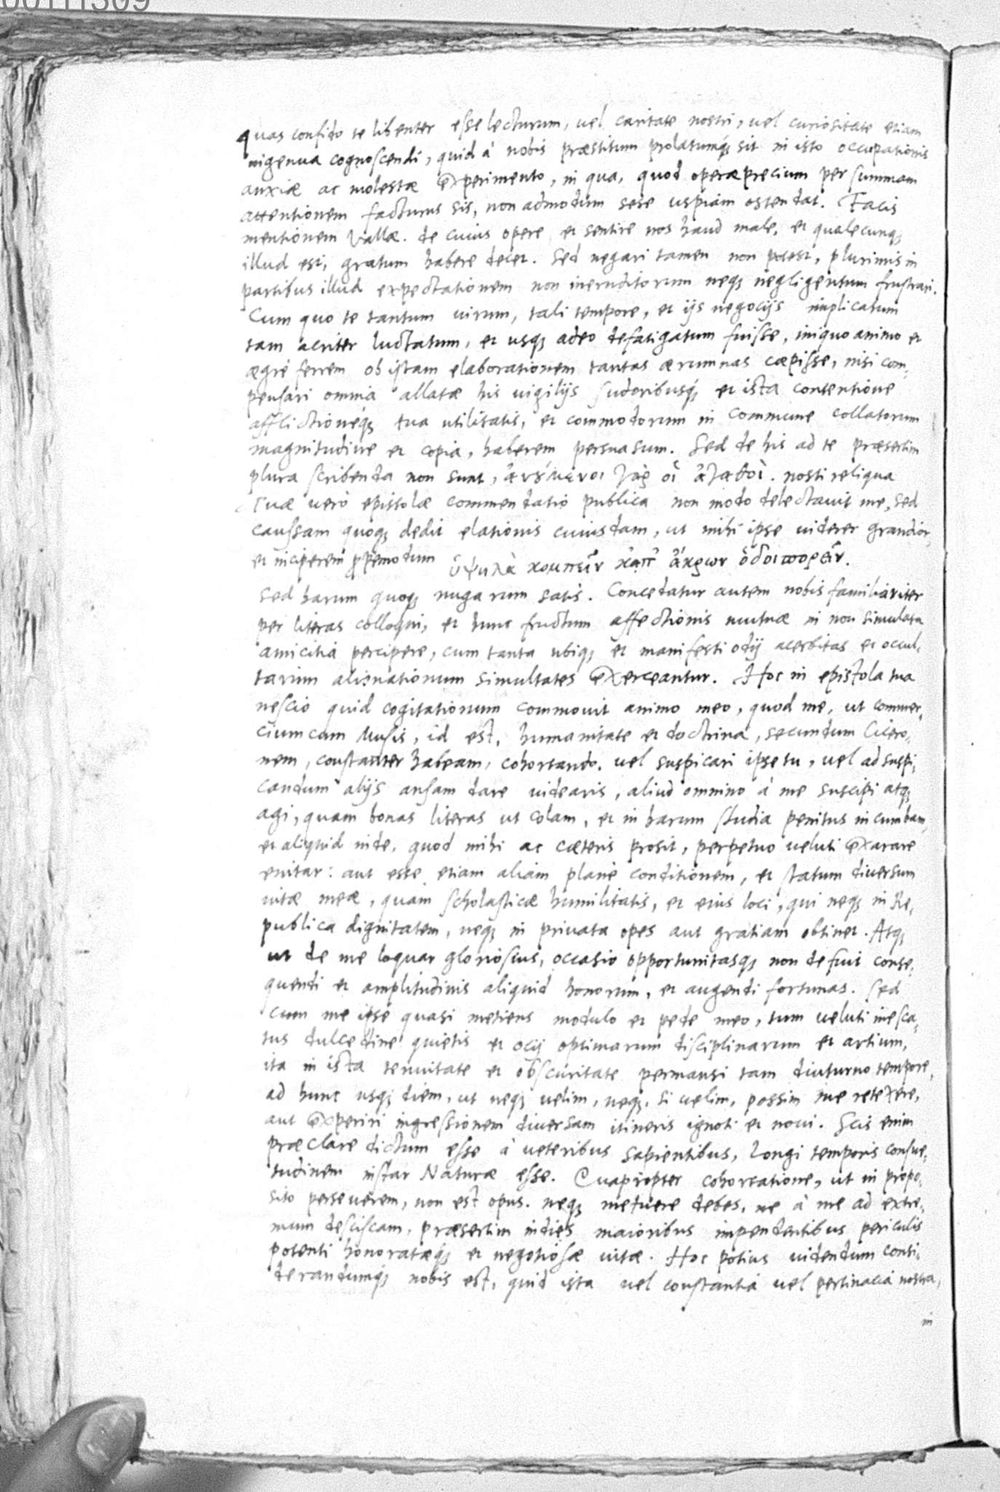 00111309
quas confido te libenter esse lecturum, vel caritate nostri, vel curiositate etiam
ingenua cognoscendi, quid à nobis præstitum prolatumq; sit in isto occupationis
anxiæ ac molestæ experimento, in qua, quod operæprecium per summam
attentionem facturus sis, non admodum sese uspiam ostendat. Facis
mentionem Vallæ. de cuius opere et sentire nos haud male, et qualecunq;
illud est, gratum habere decet. Sed negari tamen non potest, plurimis in
partibus illud expectationem non ineruditorum neq; negligentum frustrari.
Cum quo te tantum virum, tali tempore, et ijs negocijs implicatum
tam acriter luctatum, et usq; adeo defatigatum fuisse, iniquo animo et
ægrè ferrem ob istam elaborationem tantas ærumnas cœpisse, nisi com-
pensari omnia allatæ his vigilijs sudoribusq; et ista contentione
afflictioneq; tua utilitatis, et commodorum in commune collatorum
magnitudine et copia, haberem persuasum. Sed de his ad te præsertim
plura scribenda non sunt, γὰρ οἱ ἀγαθοί. nosti reliqua
Tuæ verò epistolæ commendatio publica non modo delectavit me, sed
caussam quoq; dedit elationis cuiusdam, ut mihi ipse viderer grandior,
et inciperem propemodum ὑψηλὰ κομπεῖν κἀπ' ἄκρων ὁδοιπορεῖν.
Sed harum quoq; nugarum satis. Concedatur autem nobis familiariter
per literas colloqui, et hunc fructum affectionis mutuæ in non simulata
amicitia percipere, cum tanta ubiq; et manifesti odij acerbitas et occul-
tarum alienationum simultates exerceantur. Hoc in epistola tua
nescio quid cogitationum commovit animo meo, quod me, ut commer-
cium cum Musis, id est, humanitate et doctrina, secundum Cicero-
nem, constanter habeam, cohortando. vel suspicari ipse tu, vel ad suspi-
candum alijs ansam dare videaris, aliud omnino à me suscipi atq;
agi, quam bonas literas ut colam, et in harum studia penitus incumbam,
et aliquid inde, quod mihi ac cæteris prosit, perpetuo veluti exarare
enitar: aut esse etiam aliam planè conditionem, et statum diversum
vitæ meæ, quam scholasticæ humilitatis, et eius loci, qui neq; in Re-
publica dignitatem, neq; in privata opes aut gratiam obtinet. Atq;
ut de me loquar gloriosius, occasio opportunitasq; non defuit conse-
quendi et amplitudinis aliquid honorum, et augendi fortunas. Sed
cum me ipse quasi metiens modulo et pede meo, tum veluti inesca-
tus dulcedine quietis et ocij optimarum disciplinarum et artium,
ita in ista tenuitate et obscuritate permansi tam diuturno tempore,
ad hunc usq; diem, ut neq; velim, neq; si velim, possim me retexere,
aut experiri ingressionem diversam itineris ignoti et novi. Scis enim
præclare dictum esse à veteribus sapientibus, longi temporis consue-
tudinem instar Naturæ esse. Quapropter cohortatione, ut in propo-
sito perseverem, non est opus. neq; metuere debes, ne à me ad extre-
mum desciscam, præsertim indies maioribus impendentibus periculis
potenti honoratæq; et negotiosæ vitæ. Hoc potius videndum consi-
derandumq; nobis est, quid ista vel constantia vel pertinacia nostra,
in